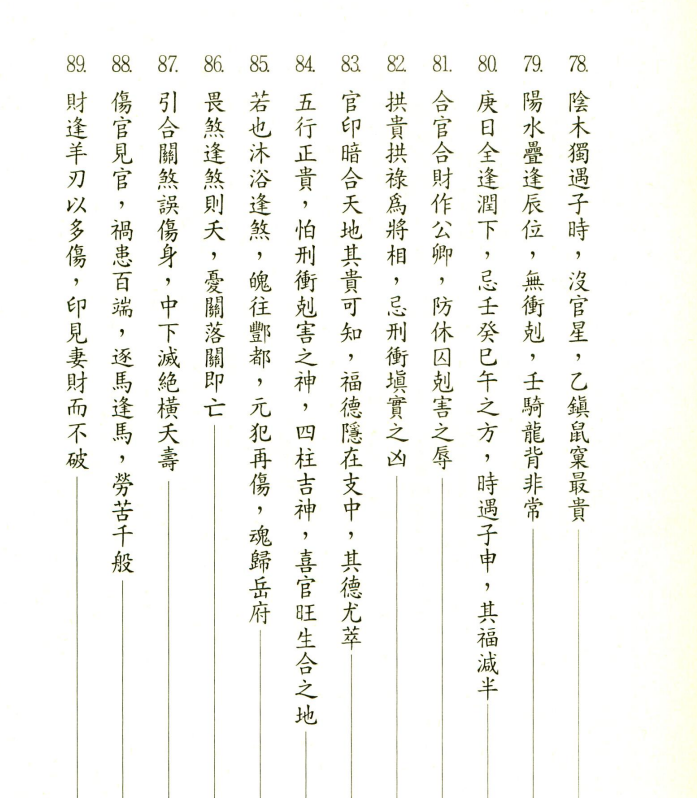 78. 陰木獨遇子時，沒官星，乙鎮鼠窠最貴
79. 陽水疊逢辰位，無衝剋，壬騎龍背非常
80. 庚日全逢潤下，忌壬癸巳午之方，時遇子申，其福減半
81. 合官合財作公卿，防休囚剋害之辱
82. 拱貴拱祿為將相，忌刑衝塡實之凶
83. 官印暗合天地其貴可知，福德隱在支中，其德尤萃
84. 五行正貴，怕刑衝剋害之神，四柱吉神，喜官旺生合之地
85. 若也沐浴逢煞，魄往酆都，元犯再傷，魂歸岳府
86. 畏煞逢煞則夭，憂關落關即亡
87. 引合關煞誤傷身，中下滅絕橫夭壽
88. 傷官見官，禍患百端，逐馬逢馬，勞苦千般
89. 財逢羊刃以多傷，印見妻財而不破